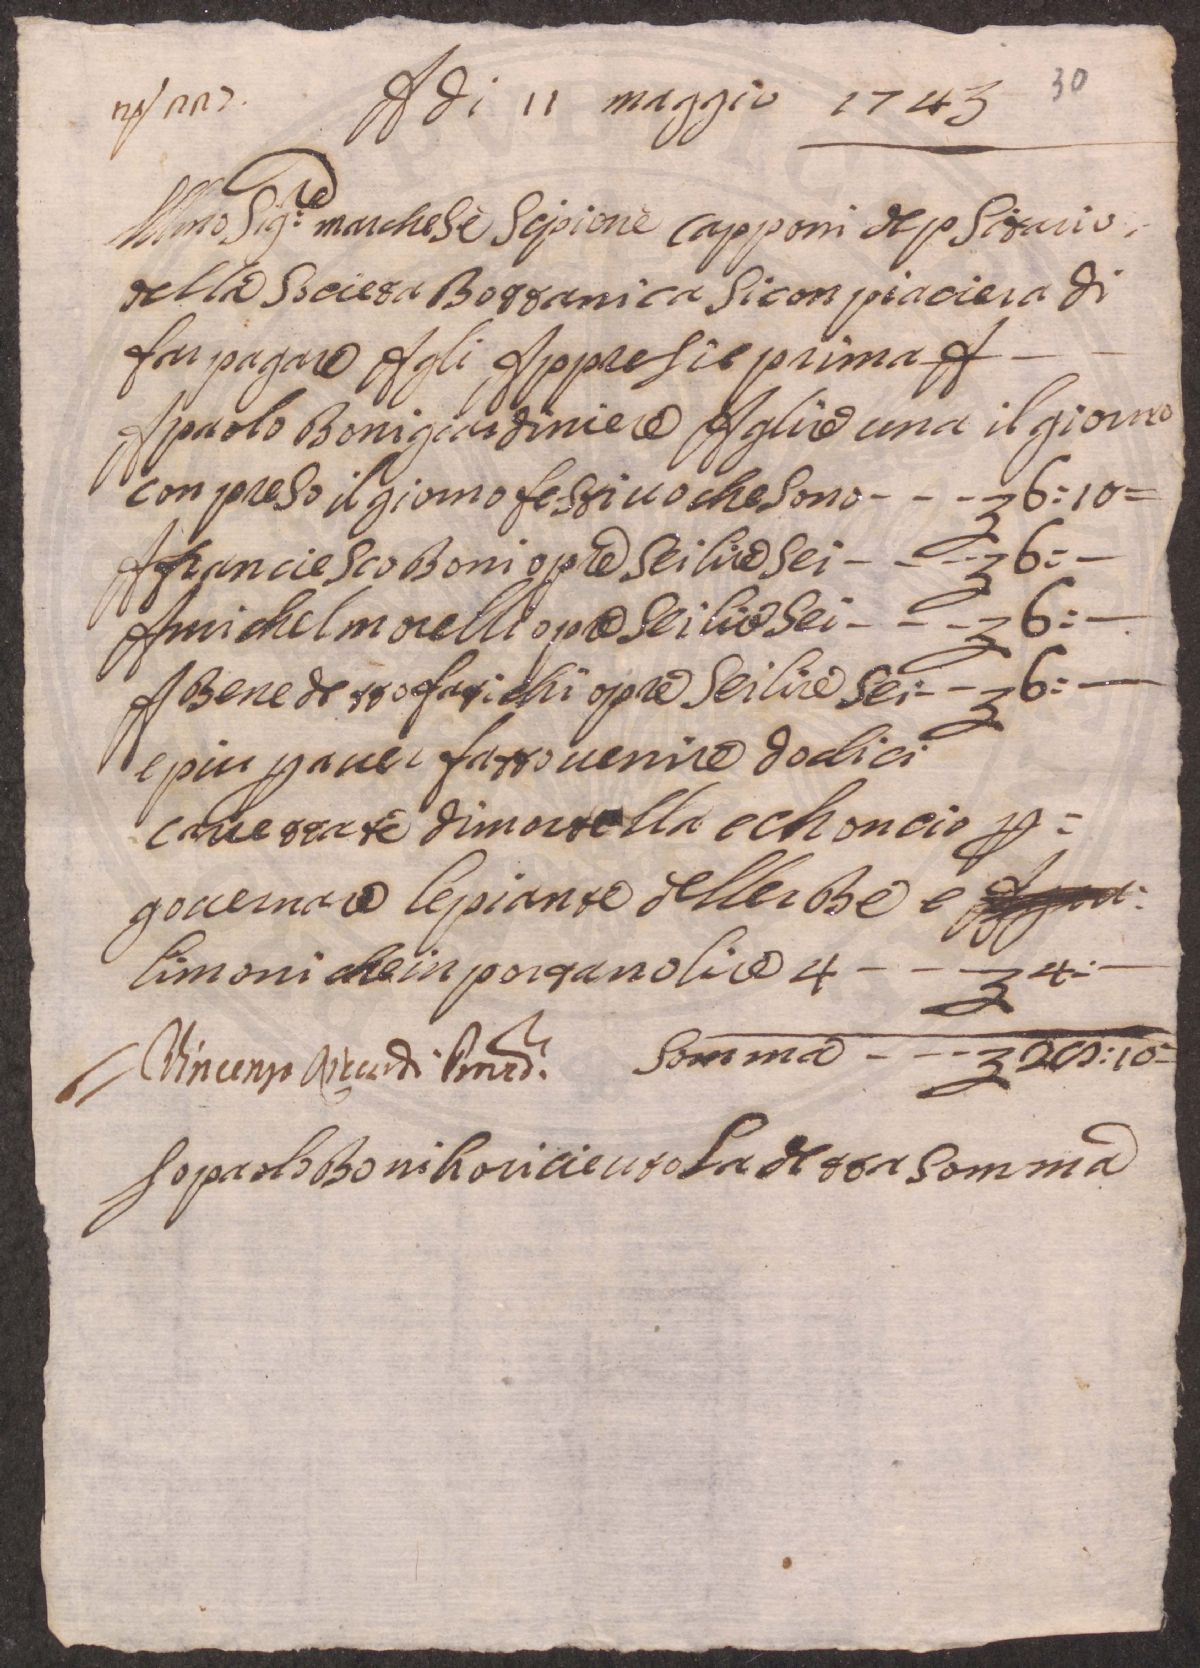 A di 11 maggio 1743
30
Illmo Sig:re marchese Scipione Capponi depsitario
della Scieta Bottanica si con piaciera di
far pagare Agli Appresi e prima A - -
A paolo Boni giardiniere A lire una il giorno
con preso il giorno festiuo che sono - - - 6:10=
A franciesco Boni opre sei lire sei - - - 6:-
A michel morelli opre sei lire sei - - - 6:-
A Benedetto farichi opre sei lire sei - - 6:-
e piu p auer fatto uenire dodici
carettate di mortella e choncio p =
gouernare le piante dell erbe e
limoni che in portano lire 4 - - - 4:-
Vincenzo
somma - - - 28:10=
Io paolo Boni ho riceuto La detta somma